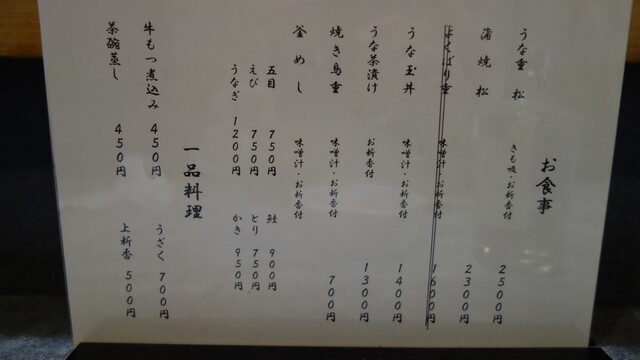 お食事
うな重 松 きも吸・お新香付 2500円
蒲焼 松 2300円
よくばり重 味噌汁・お新香付 1600円
うな玉丼 味噌汁・お新香付 1400円
うな茶漬け お新香付 1300円
焼き鳥重 味噌汁・お新香付 700円
釜めし 味噌汁・お新香付
五目 750円 鮭 900円
えび 750円 とり 750円
うなぎ 1200円 かき 950円
一品料理
牛もつ煮込み 450円 うざく 700円
茶碗蒸し 450円 上新香 500円